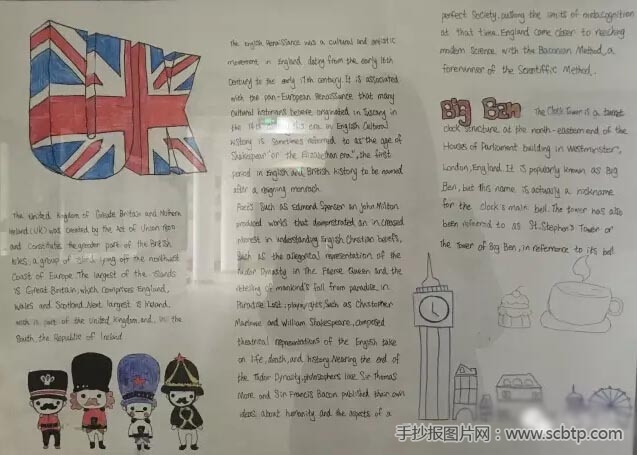 The English Renaissance was a cultural and artistic
movement in England dating from the early 16th
Century to the early 17th century. It is associated
with the pan-European Renaissance that many
cultural historians believe originated in Tuscany in
the 14th era in English Cultural
history is sometimes referred to as "the age of
Shakespear" or "the Elizabethan era", the first
period in English and British history to be named
after a reigning monarch
Poets Such as Edmond Spencer an John Milton
produced works that demonstrated an increased
interest in understanding English Christian beliefs,
Such as the allegorical representation of the
Tudor Dynasty in the Faerie Queen and the
retelling of mankind's fall from paradise in
Paradise Lost; playwrights, Such as Christopher
Marlowe and William Shakespeare, composed
theatrical representations of the English take
on life, death, and history. Nearing the end of
the Tudor Dynasty, philosophers like Sir Thomas
More and Sir Francis Bacon published their own
ideas about humanity and the aspects of a
perfect Society, pushing the limits of metacognition
at that time. England came closer to reaching
modern science with the Baconian Method, a
forerunner of the Scientiffic Method.
The United Kingdom of Greate Britain and Nothern
Ireland (UK) was created by the Act of Union 1800
and Constitute the greater part of the British
Isles, a group of lying off the northwest
Coast of Europe. The largest of the islands
is Great Britain, which comprises England,
Wales and Scotland. Next largest is Ireland,
wich is part of the United Kingdom and, in the
South, the Republic of Ireland
Big Ben The Clock Tower is a
clock structure at the north-eastern end of the
Houses of Parliament building in Westminster,
London, England. It is popularly known as Big
Ben, but this name is actually a nickname
for the clock's main bell. The tower has also
been referred to as St. Stephen's Tower or
The Tower of Big Ben, in refernence to its bell
手抄报图片网：www.scbtp.com